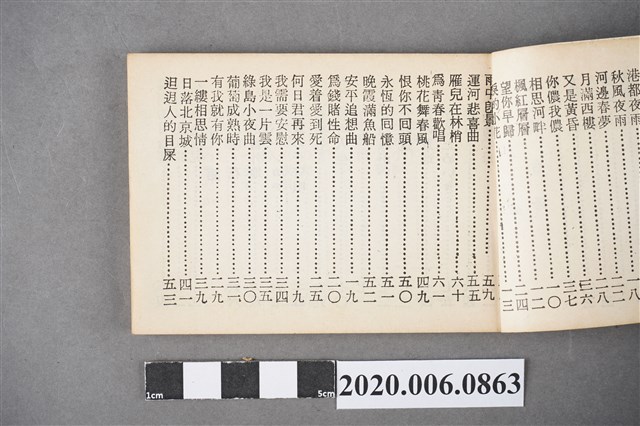 港都夜雨……二
秋風夜雨……二二
河邊春夢……二八
月滿西樓……三六
又是黃昏……三七
你儂我儂……一〇
相思河畔……一二
楓紅層層……二四
望你早歸……一三
雨中即景……五九
運河悲喜曲……五五
雁兒在林梢……六十
爲靑春歡唱……六一
桃花舞春風……四九
恨你不回頭……五〇
永恆的回憶……五一
晚霞滿魚船……五二
安平追想曲……一九
爲錢賭性命……二〇
愛着愛到死……二五
何日君再來……九
我需要安慰……三四
我是一片雲……三五
綠島小夜曲……三〇
葡萄成熟時……三一
有我就有你……二九
一縷相思情……三九
日落北京城……四一
迌迌人的目屎……五三
1cm
5cm
2020.006.0863